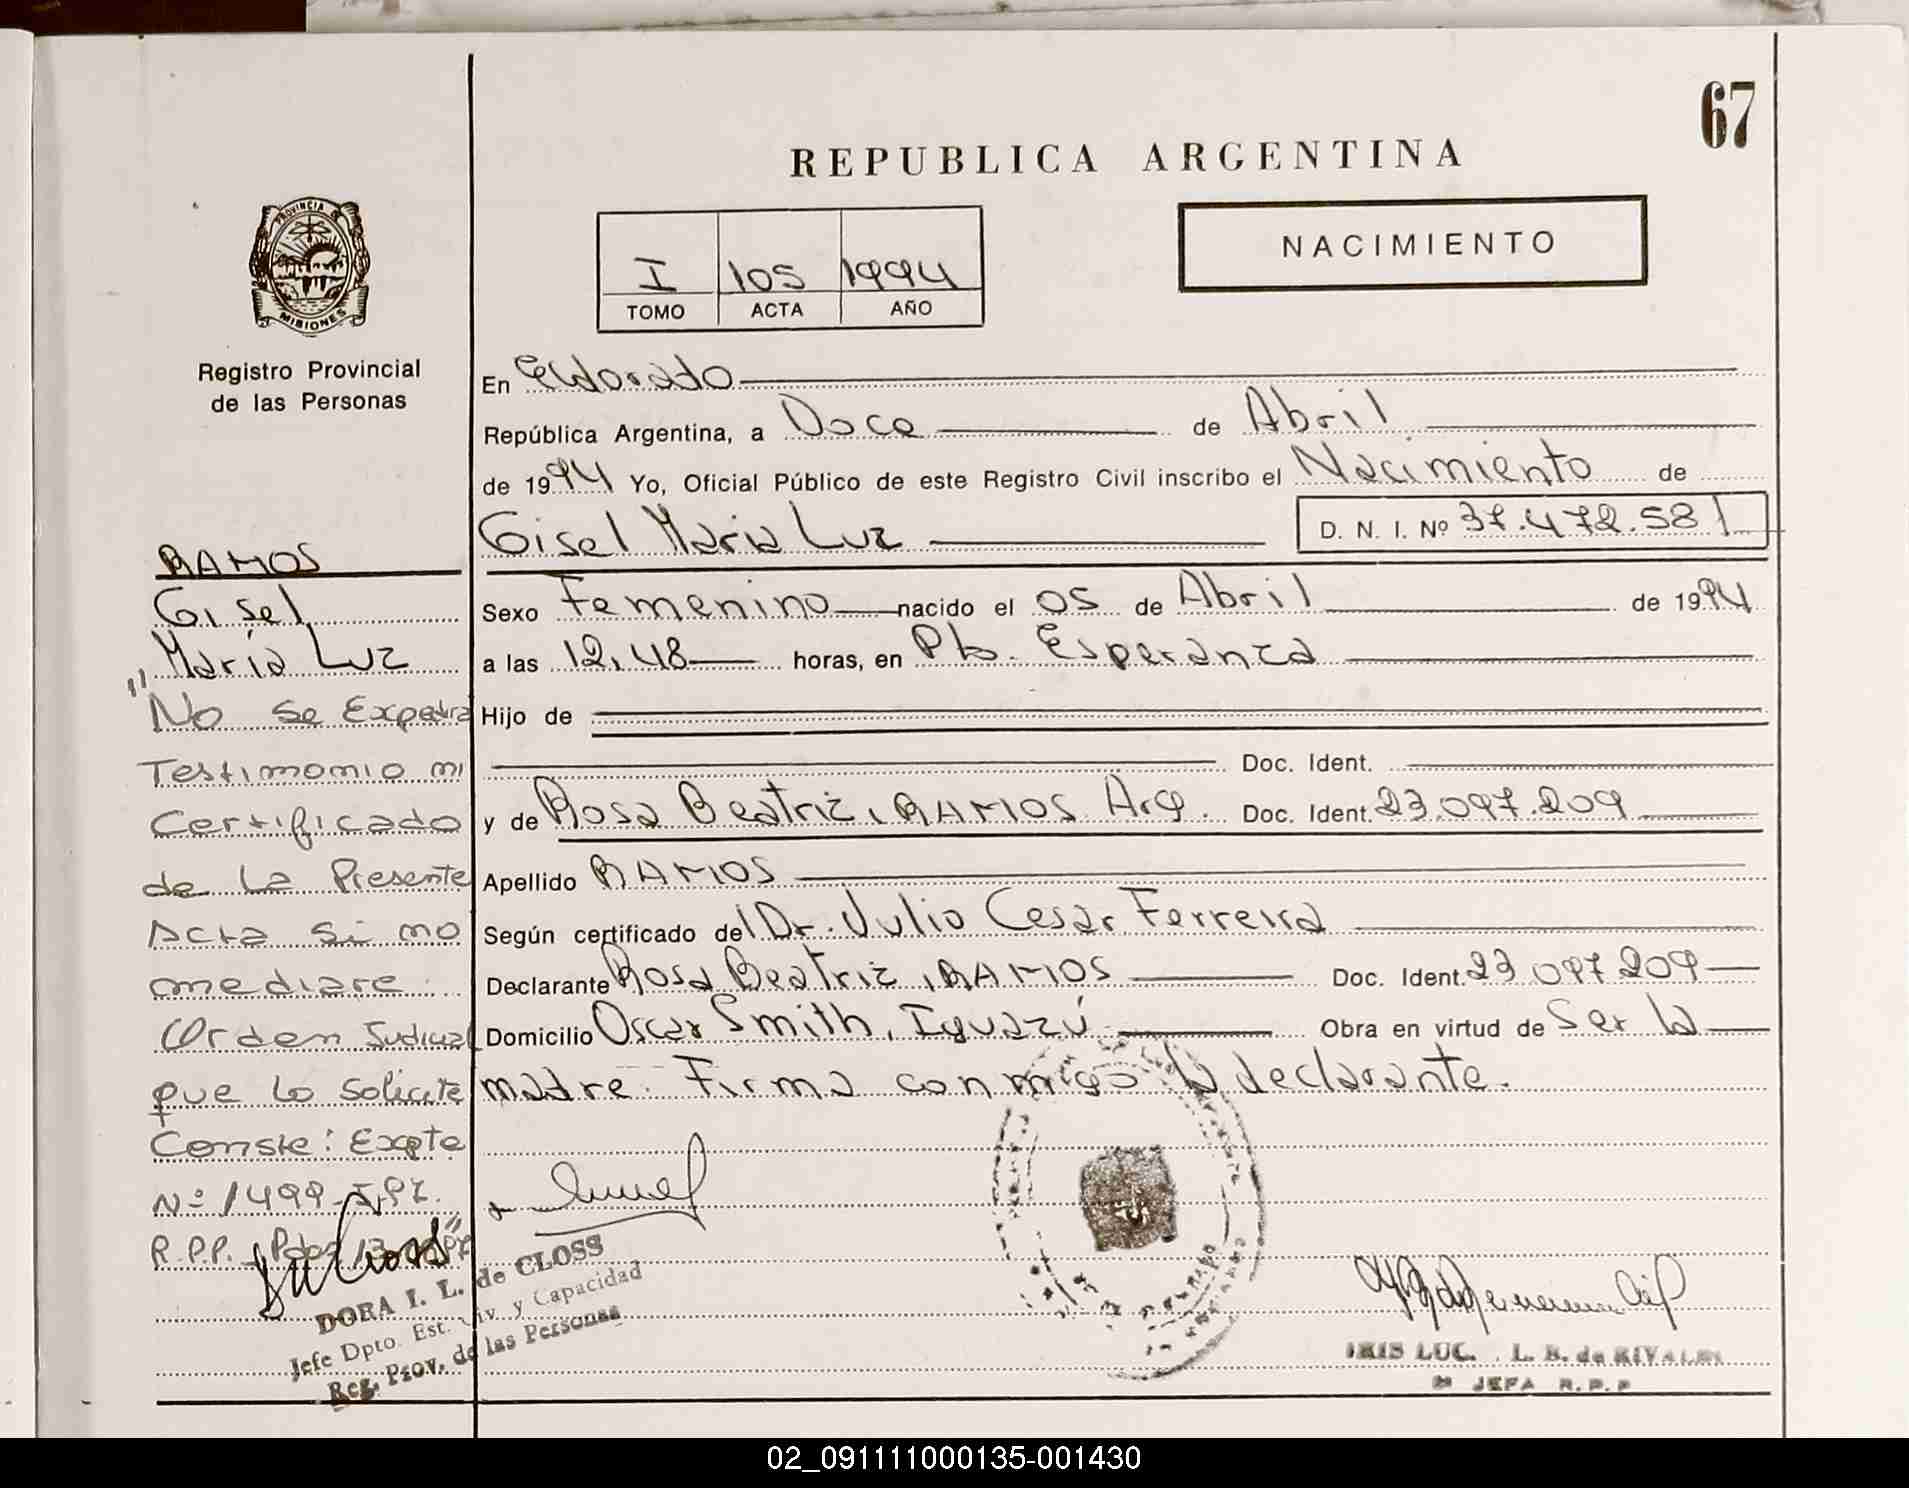 67
REPUBLICA ARGENTINA
PROVINCIA DE
MISIONES
Registro Provincial
de las Personas
I 105 1994
TOMO ACTA AÑO
NACIMIENTO
En Eldorado
República Argentina, a Doce de Abril
de 1994 Yo, Oficial Público de este Registro Civil inscribo el Nacimiento de
Gisel Maria Luz D. N. I. Nº 37.472.581
Sexo Femenino nacido el 05 de Abril de 1994
a las 12,48 horas, en Pto. Esperanza
Hijo de
Doc. Ident.
y de Rosa Beatriz, RAMOS Arg. Doc. Ident. 23.097.209
Apellido RAMOS
Según certificado del Dr. Julio Cesar Ferreira
Declarante Rosa Beatriz, RAMOS Doc. Ident. 23 097 209
Domicilio Oscar Smith, Iguazú Obra en virtud de Ser la
madre. Firma conmigo la declarante.
RAMOS
Gisel
María Luz
"No se Expedira
Testimonio ni
Certificado
de La Presente
Acta Si no
mediare
Orden Judicial
que Lo Solicite
Conste: Expte
Nº 1499
R.P.P.
DORA I. L. de CLOSS
Jefe Dpto. Est. Civ. y Capacidad
Reg. Prov. de las Personas
IRIS LUC. L. B. de
JEFA R.P.P
02_091111000135-001430